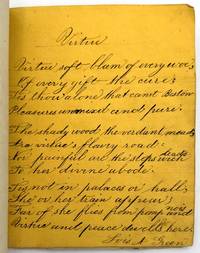 Virtue
Virtue soft blam of every woe,
Of every gift the cure;
Tis thou alone that canst Bestow
Pleasures unmixed and pure.
The shady wood the verdant mead,
Are virtue's flowry road:
Nor painful are the steps which leads
To her divine abode.
Tis not in palaces or halls,
She or her train appear,
Far of she flies from pomp and noise
Virtue and peace dwells here.
A. Green